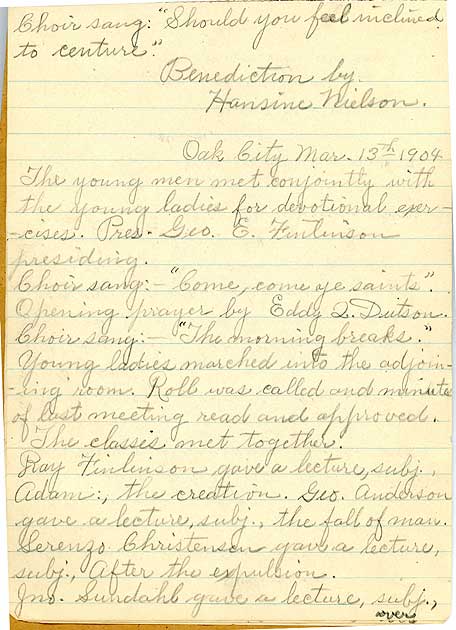 Choir sang: "Should you feel inclined
to centure."
Benediction by.
Hansine Nielson.
Oak City Mar. 13th 1904
The young men met conjointly with
the young ladies for devotional exer-
-cises. Pres. Geo. E. Finlinson
presiding.
Choir sang:- "Come, come ye saints".
Opening prayer by Eddy Q. Dutson.
Choir sang:- "The morning breaks."
Young ladies marched into the adjoin-
-ing room. Roll was called and minutes
of last meeting read and approved.
The classes met together.
Ray Finlinson gave a lecture, subj.,
Adam:, the creation. Geo. Anderson
gave a lecture, subj., the fall of man.
Serenzo Christensen gave a lecture,
subj., After the expulsion.
Jno. Lundahl gave a lecture, subj.,
over